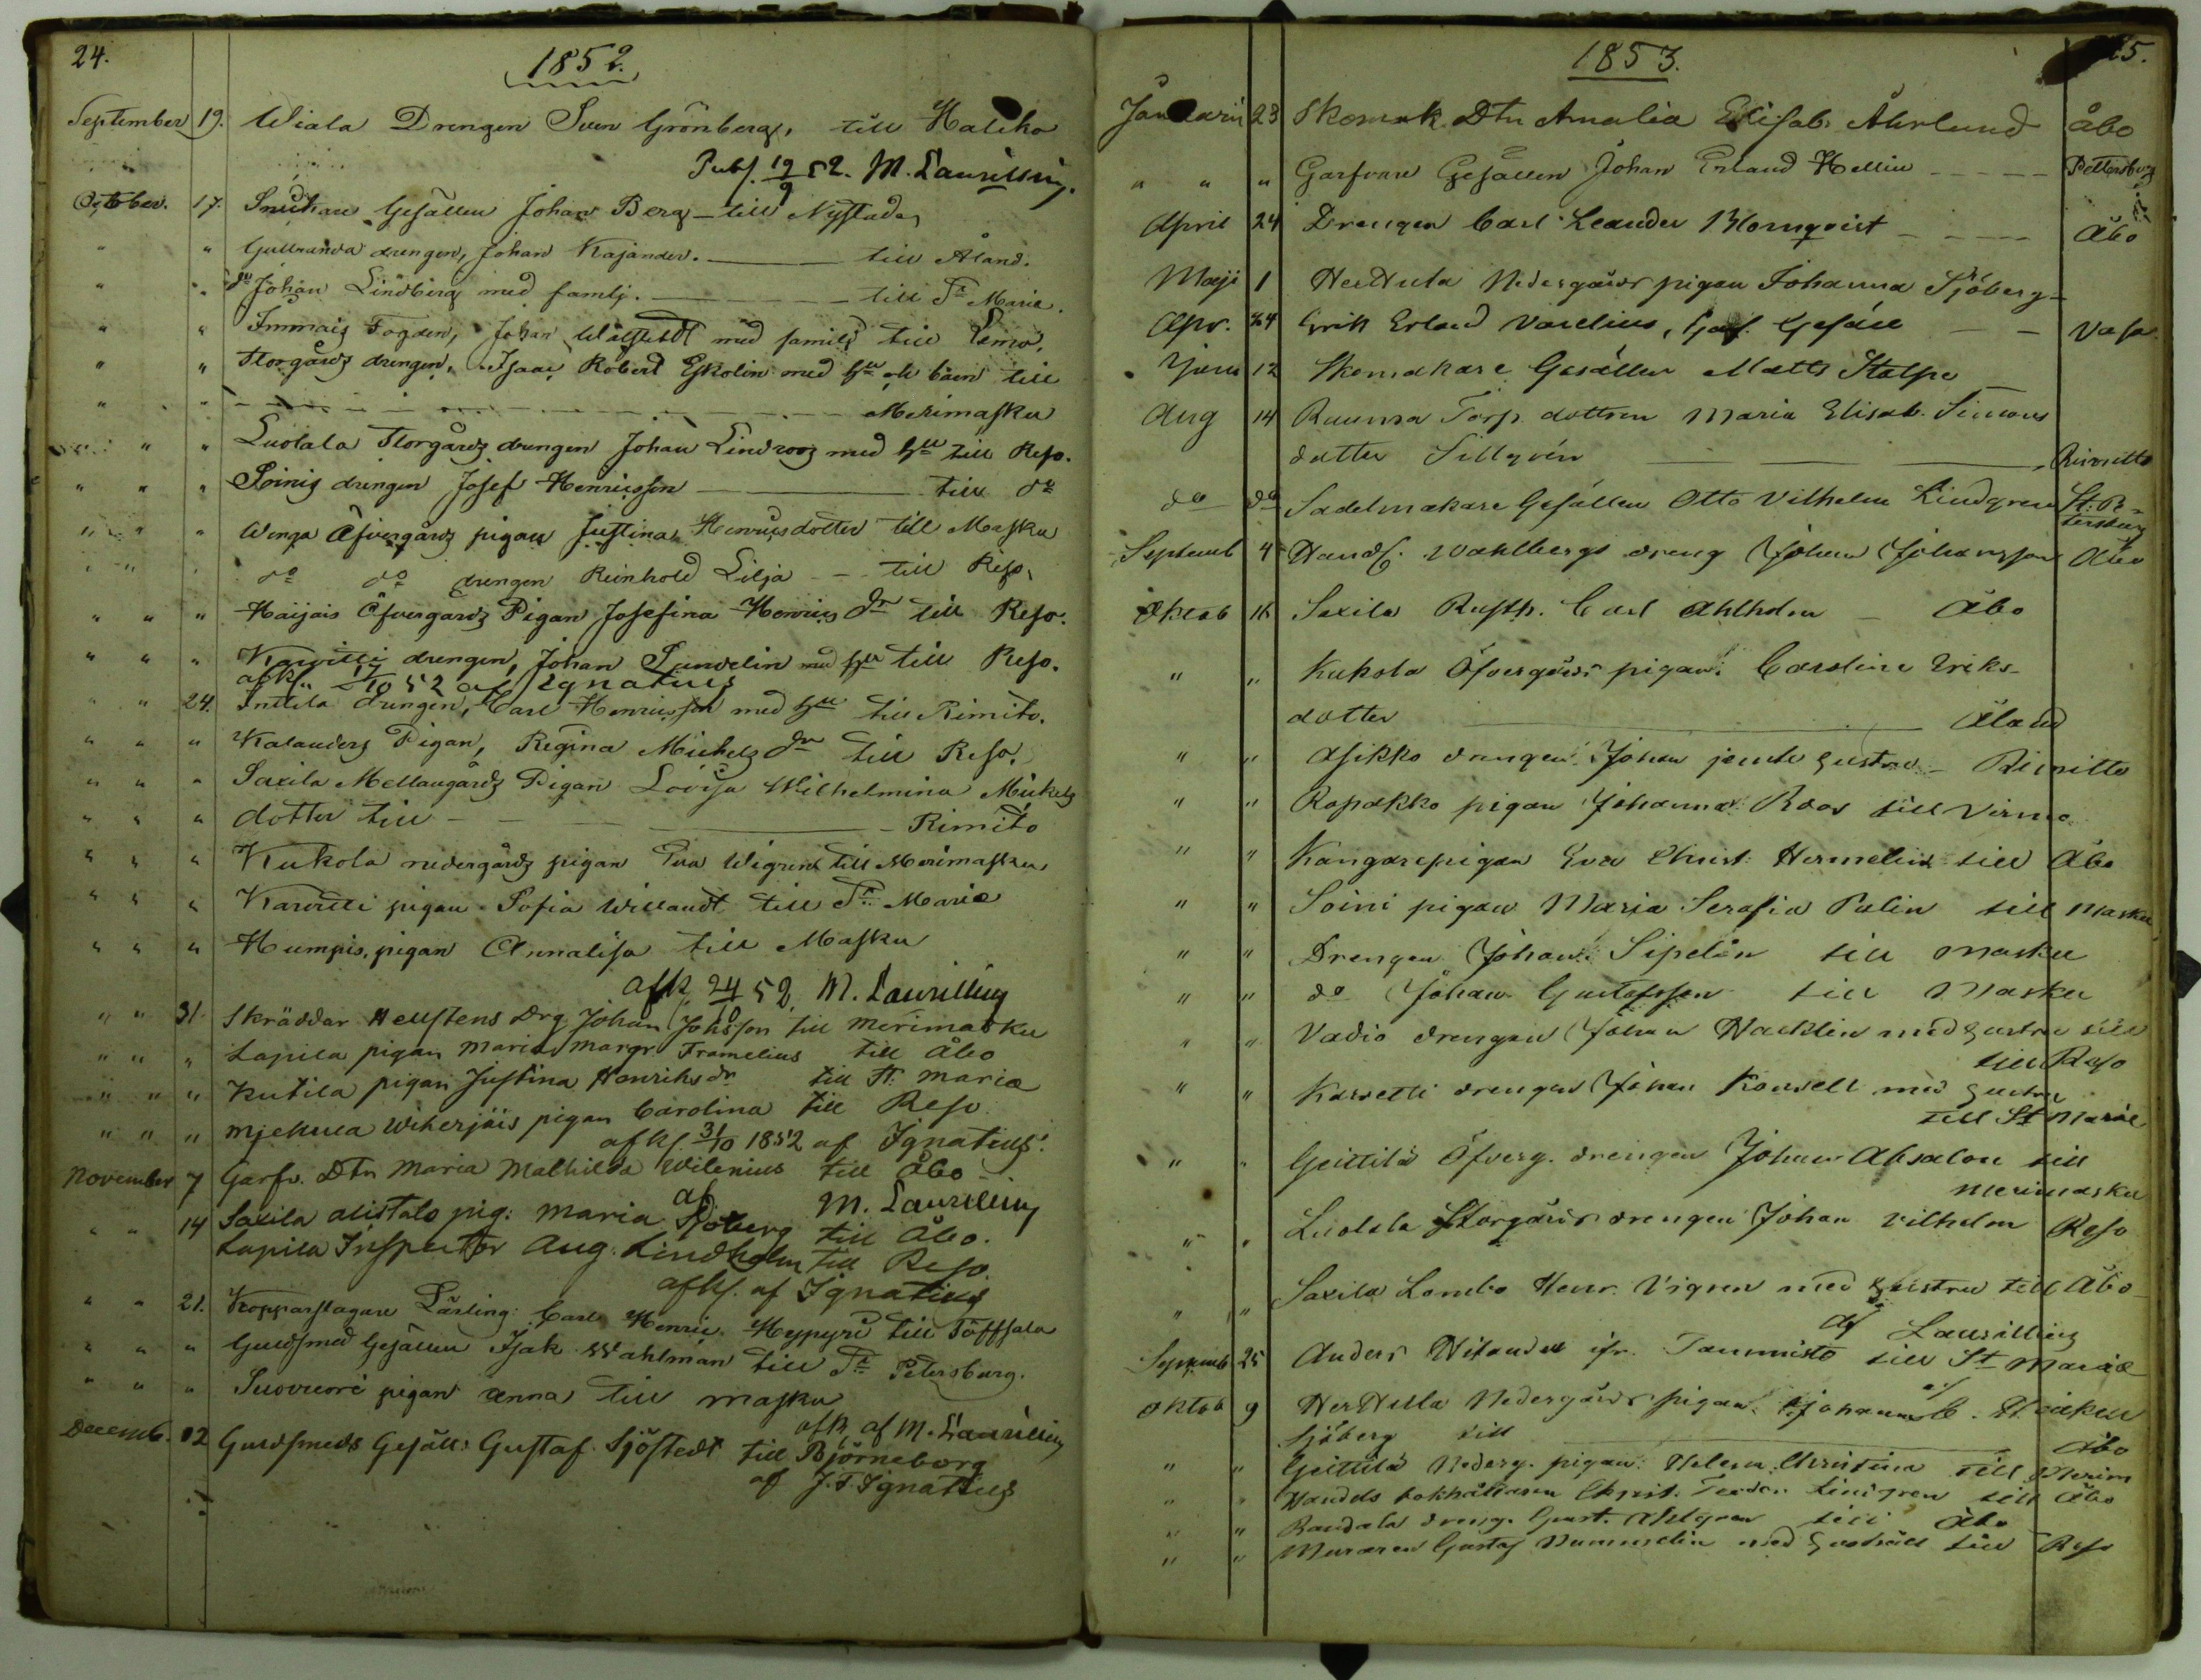 24.
1852.
September 19. Wiala Drengen Sven Grönberg, till Haliko
Publ. 19/9 52. M. Laurillius.
October. 17. Snickare Gesällen Johan Berg – till Nystad
" " Gullranda drengen, Johan Kajander. till Åland.
" " do Johan Lindberg med familj. till St Marie.
" " Immais Fogden, Johan med familj till Lemo.
" " Storgårds drengen, Isaac Robert Eskolin med hu o barn till
" " Merimasku
" " Luolala Storgårds drengen Johan Lindroos med hu till Reso.
" " " Soinis drengen Josef Henricsson till do
" " " Öfvergårds pigan Justina Henricsdotter till Masku
" " do do drengen Reinhold Lilja – till Reso.
" " " Haijais Öfvergårds Pigan Josefina Henrics dr till Reso.
" " " Karvetti drengen, Johan Sundelin med hu till Reso.
afk. 17/10 52 af Ignatius
" " 24. Inttila drengen, Carl Henricsson med hu till Rimito.
" " " Kalanders Pigan, Regina Michels dr till Reso.
" " " Saxila Mellangårds Pigan Lovisa Wilhelmina Mickels
" " " dotter till Rimito
" " " Kukola nedergårds pigan Eva Wigren till Merimasku
" " " Karvetti pigan Sofia Willandt till St. Marie
" " " Humpis, pigan Annalisa till Masku
afk. 24/10 52. M. Laurillius
" " 31. Skräddar Hellstens Drg. Johan Johsson till Merimasku
" " " Lapila pigan Maria Margr Framelius till Åbo
" " " Kutila pigan Justina Henriksdr till St. Marie
" " " pigan Carolina till Reso
afk. 31/10 1852 af Ignatius.
November 7 Garfv. Dtn Maria Mathilda Wilenius till Åbo
af M. Laurillius
" " 14 Saxila Alistalo pig: Maria Sjöberg till Åbo.
Lapila Inspector Aug. Lindholm till Reso
afk. af Ignatius
" " 21. Kopparslagare Lärling Carl Henric Heypyri till Töffsala
" " " Guldsmed Gesällen Isak Wahlman till St Petersburg.
" " " Suovuori pigan Anna till Masku
afk. af M. Laurillius
Decemb. 12 Guldsmeds Gesäll: Gustaf Sjöstedt till Björneborg
af J.F. Ignatius
1853.
25.
Januari 23 Skomak. Dtn Amalia Elisab. Åhrlund Åbo
" " " Garfvare Gesällen Johan Erland Hellin Pettersburg
April 24 Drengen Carl Leander Blomqvist Åbo
Maji 1 Herttula Nedergårds pigan Johanna Sjöberg
Apr. 24 Erik Erland Varelius, Garf. Gesäll Vasa
Juni 12 Skomakare Gesällen Matts Stolpe
Aug 14 Torp. dottren Maria Elisab. Simons
dotter Sillqvén Rimitto
do do Sadelmakare Gesällen Otto Vilhelm Lindgren St. Petersburg
Septemb 4 Handl. Wahlbergs dreng Johan Johansson Åbo
Oktob 16 Saxila Rusth. Carl Ahlholm – Åbo
" " Kukola Öfvergårds pigan Caroline Eriks-
dotter Åland
" " Asikko drengen Johan jemte hustru – Rimitto
" " Rapakko pigan Johanna Roos till Virmo
" " Kangas pigan Eva Christ. Hermelin till Åbo
" " Soini pigan Maria Serafia Palin till Masku
" " Drengen Johan Sipelin till Masku
" " do Johan Gustafsson till Masku
" " Vadio drengen Johan Nacklin med hustru till
till Reso
" " Karvetti drengen Johan Konsell med hustru
till St Marie
" " Geittilä Öfverg. drengen Johan Absalon till
Merimasku
" " Luolala Storgårds drengen Johan Vilhelm Reso
" " Saxila Lambo Henr. Vigren med hustru till Åbo
af Laurillius
Septemb 25 Anders Nitander ifr. Tammisto till St Marie
Oktob 9 Herttula Nedergårds pigan Johanna
Sjöberg till Åbo
" " Geittilä Nederg. pigan Helena Christina till Merim
" " Handels bokhållaren Christ. Teodor Lindgren till Åbo
" " Randala dreng. Gust. Ahlgren till Åbo
" " Muraren Gustaf Nummelin med hushåll till Reso